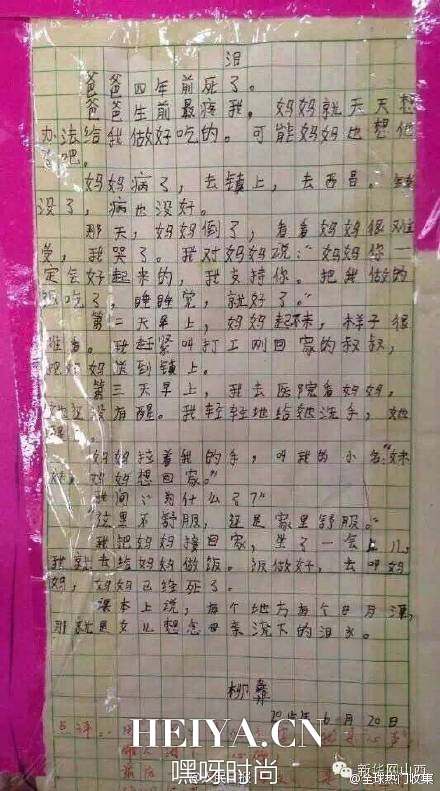 泪
爸爸四年前死了。
爸爸生前最疼我。妈妈就天天想
办法给我做好吃的。可能妈妈也想他
了吧。
妈妈病了,去镇上,去西昌。钱
没了,病也没好。
那天,妈妈倒了,看看妈妈很难
受,我哭了。我对妈妈说:“妈妈你一
定会好起来的,我支持你。把我做的
饭吃了,睡睡觉,就好了。”
第二天早上,妈妈起不来,样子很
难看。我赶紧叫打工刚回家的叔叔,
把妈妈送到镇上。
第三天早上,我去医院看妈妈,
她还没有醒。我轻轻地给她洗手,她
醒了。
妈妈拉着我的手,叫我的小名:“妹
妹,妈妈想回家。”
我问:“为什么了?”
“这里不舒服,还是家里舒服。”
我把妈妈接回家,坐了一会儿,
我就去给妈妈做饭。饭做好,去叫妈
妈,妈妈已经死了。
课本上说,每个地方每个日月潭,
那就是女儿想念母亲流下的泪水。
柳彝
2015年6月20日
HEIYA.CN
嘿呀时尚
新华网山西
@全球热门收集